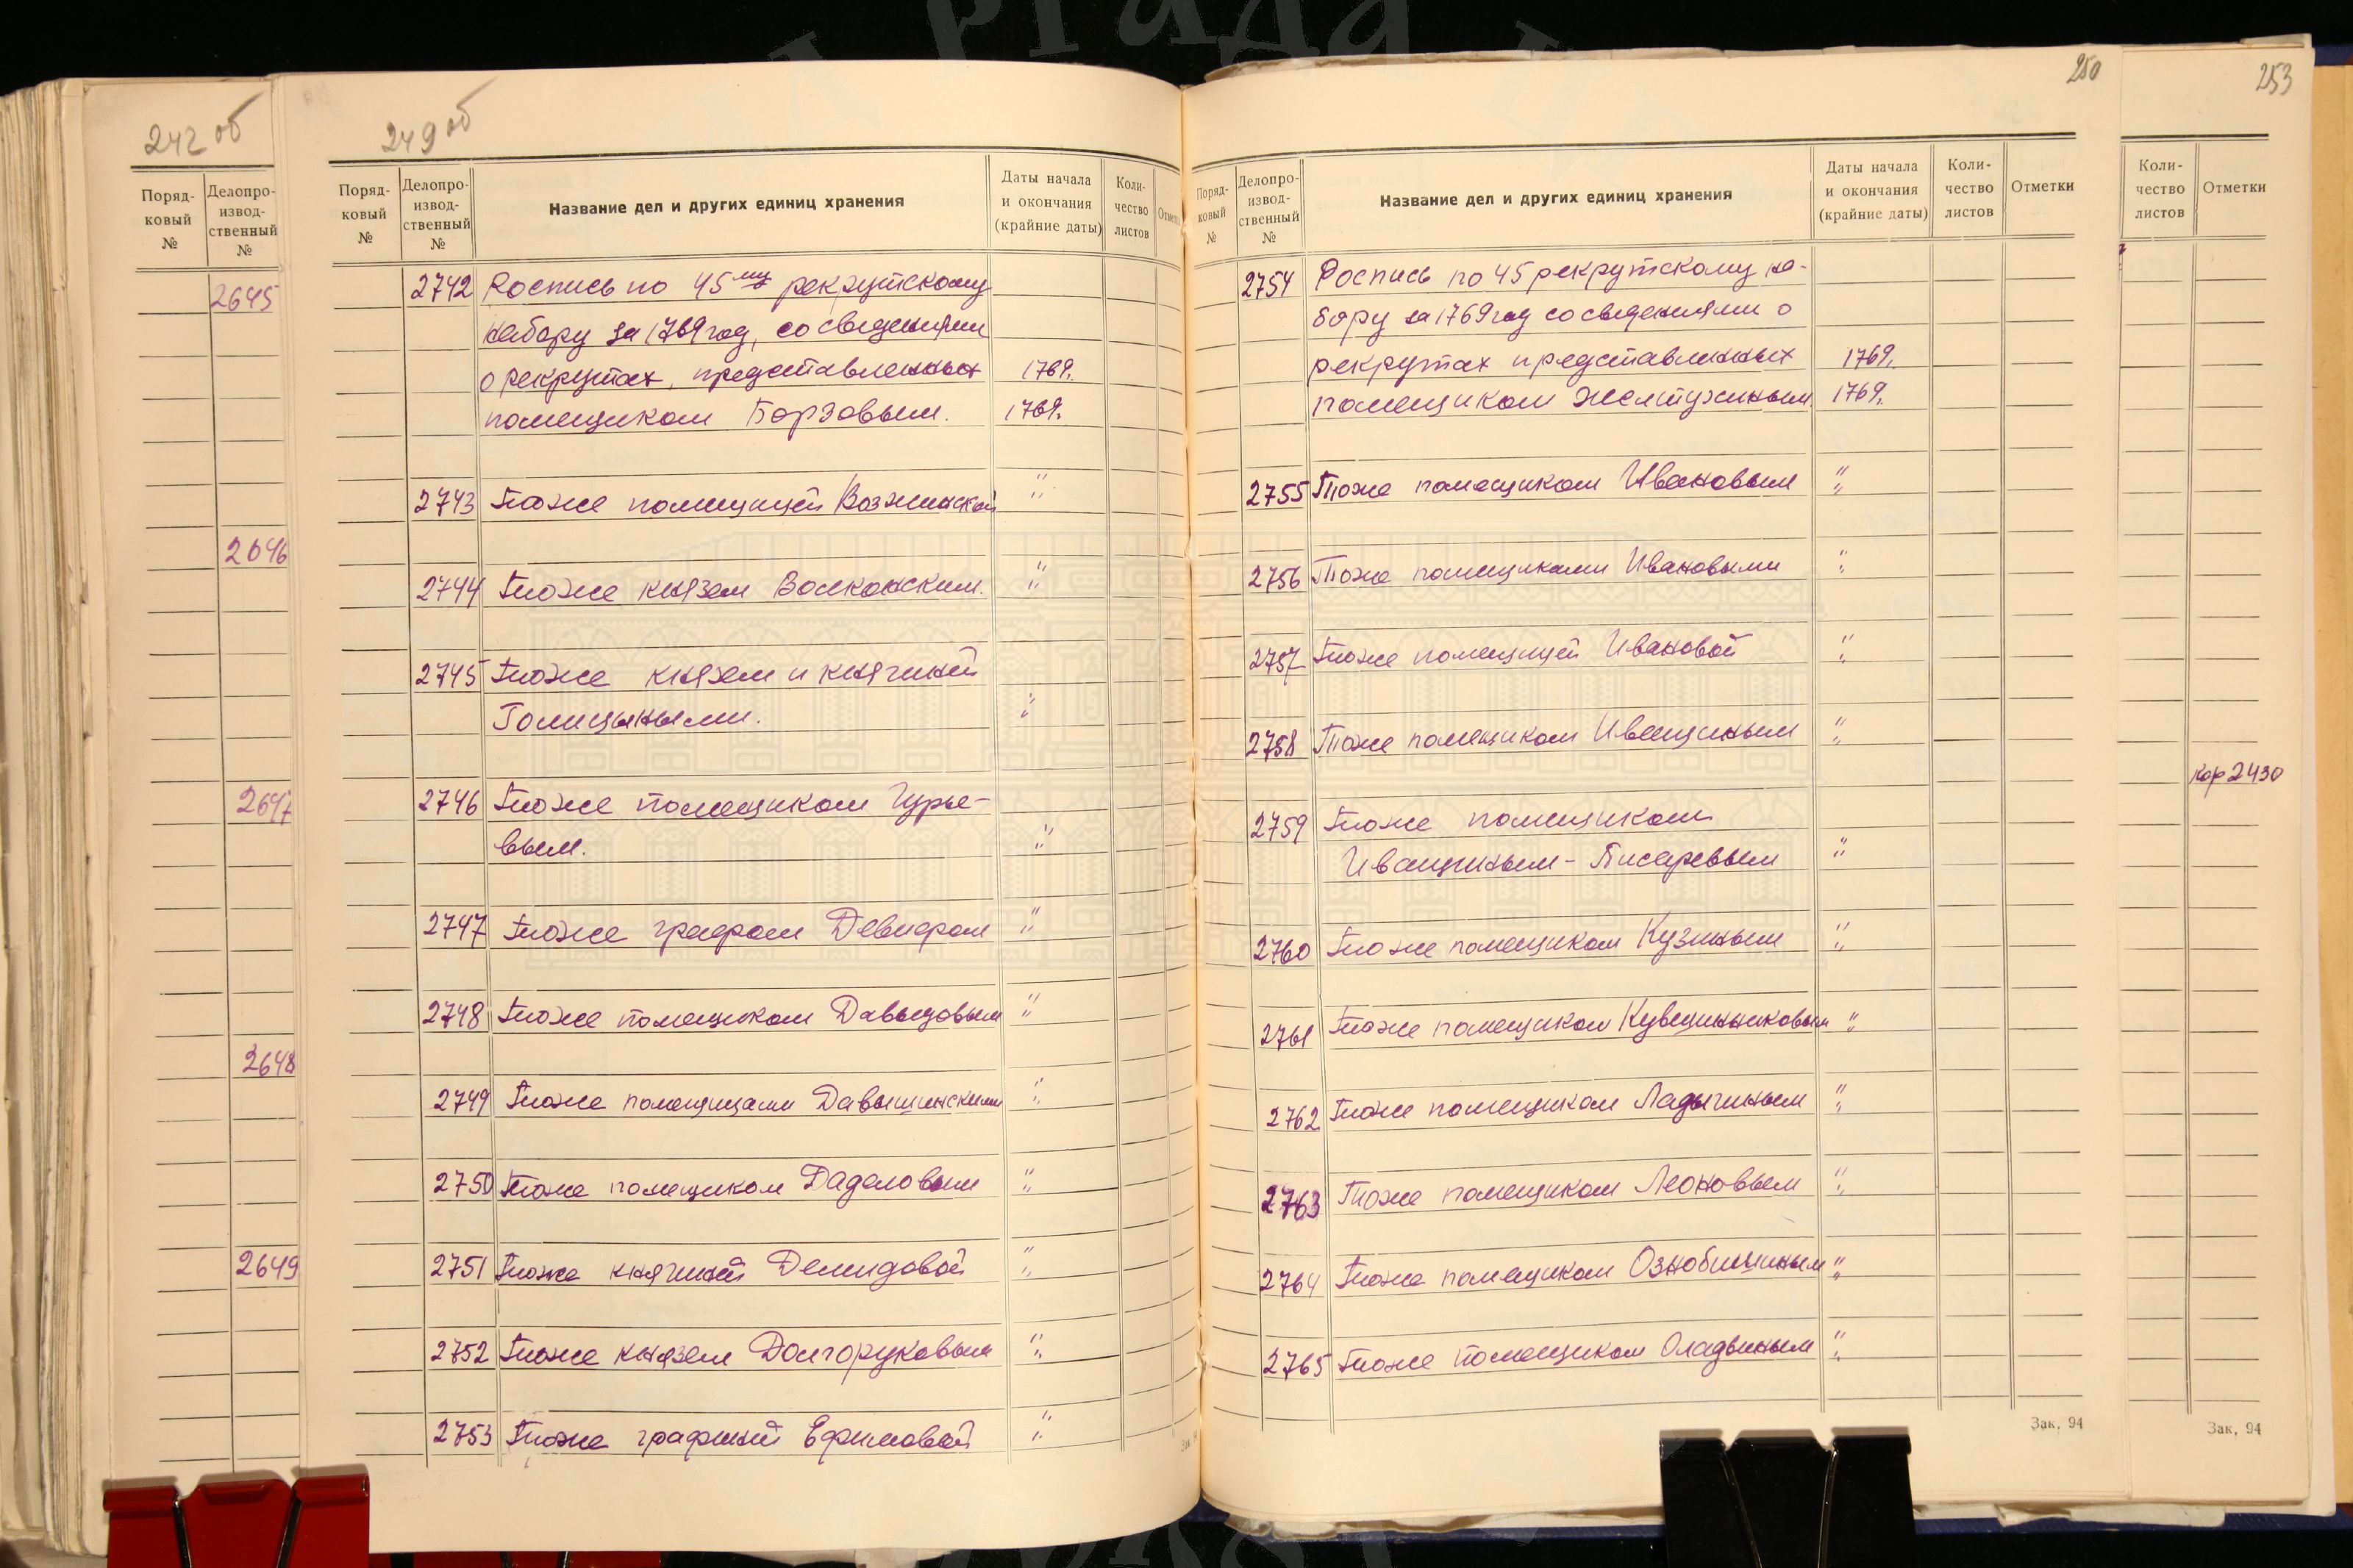 242 об
Поряд-
ковый
№
Делопро-
извод-
ственный
№
2645
2646
2647
2648
2649
249 об
Поряд-
ковый
№
Делопро-
извод-
ственный
№
Название дел и других единиц хранения
Даты начала
и окончания
(крайние даты)
Коли-
чество
листов
2742 Роспись по 45му рекрутскому
набору за 1769 год, со сведениями
о рекрутах, представленных 1769.
помещиком Борзовым. 1769.
2743 Тоже помещицей "
2744 Тоже князем Волконским. "
2745 Тоже князем и княгиней
Голицыными. "
2746 Тоже помещиком Гурье-
вым. "
2747 Тоже графом Девиером "
2748 Тоже помещиком Давыдовым "
2749 Тоже помещицами "
2750 Тоже помещиком "
2751 Тоже княгиней Демидовой "
2752 Тоже князем Долгоруковым "
2753 Тоже графиней Ефимовой "
250
Поряд-
ковый
№
Делопро-
извод-
ственный
№
Название дел и других единиц хранения
Даты начала
и окончания
(крайние даты)
Коли-
чество
листов
Отметки
2754 Роспись по 45 рекрутскому на-
бору за 1769 год со сведениями о
рекрутах представленных 1769.
помещиком Желтухиным. 1769.
2755 Тоже помещиком Ивановым "
2756 Тоже помещиками Ивановыми "
2757 Тоже помещицей Ивановой "
2758 Тоже помещиком Иващиным "
2759 Тоже помещиком
Иващиным-Писаревым "
2760 Тоже помещиком Кузиным "
2761 Тоже помещиком Кувшинниковым "
2762 Тоже помещиком Ладыгиным "
2763 Тоже помещиком Леоновым "
2764 Тоже помещиком Ознобишиным "
2765 Тоже помещиком Оладьиным "
Зак. 94
253
Коли-
чество
листов
Отметки
кор 2430
Зак. 94